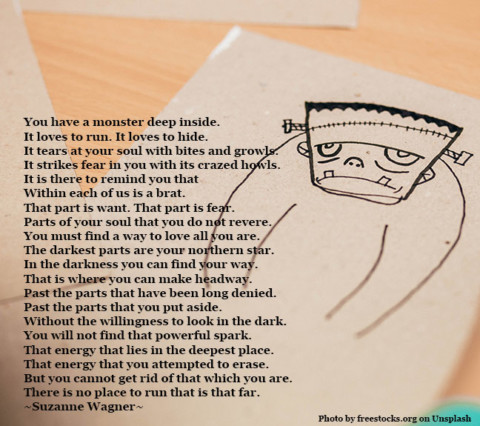 You have a monster deep inside.
It loves to run. It loves to hide.
It tears at your soul with bites and growls.
It strikes fear in you with its crazed howls.
It is there to remind you that
Within each of us is a brat.
That part is want. That part is fear.
Parts of your soul that you do not revere.
You must find a way to love all you are.
The darkest parts are your northern star.
In the darkness you can find your way.
That is where you can make headway.
Past the parts that have been long denied.
Past the parts that you put aside.
Without the willingness to look in the dark.
You will not find that powerful spark.
That energy that lies in the deepest place.
That energy that you attempted to erase.
But you cannot get rid of that which you are.
There is no place to run that is that far.
~Suzanne Wagner~
Photo by freestocks.org on Unsplash